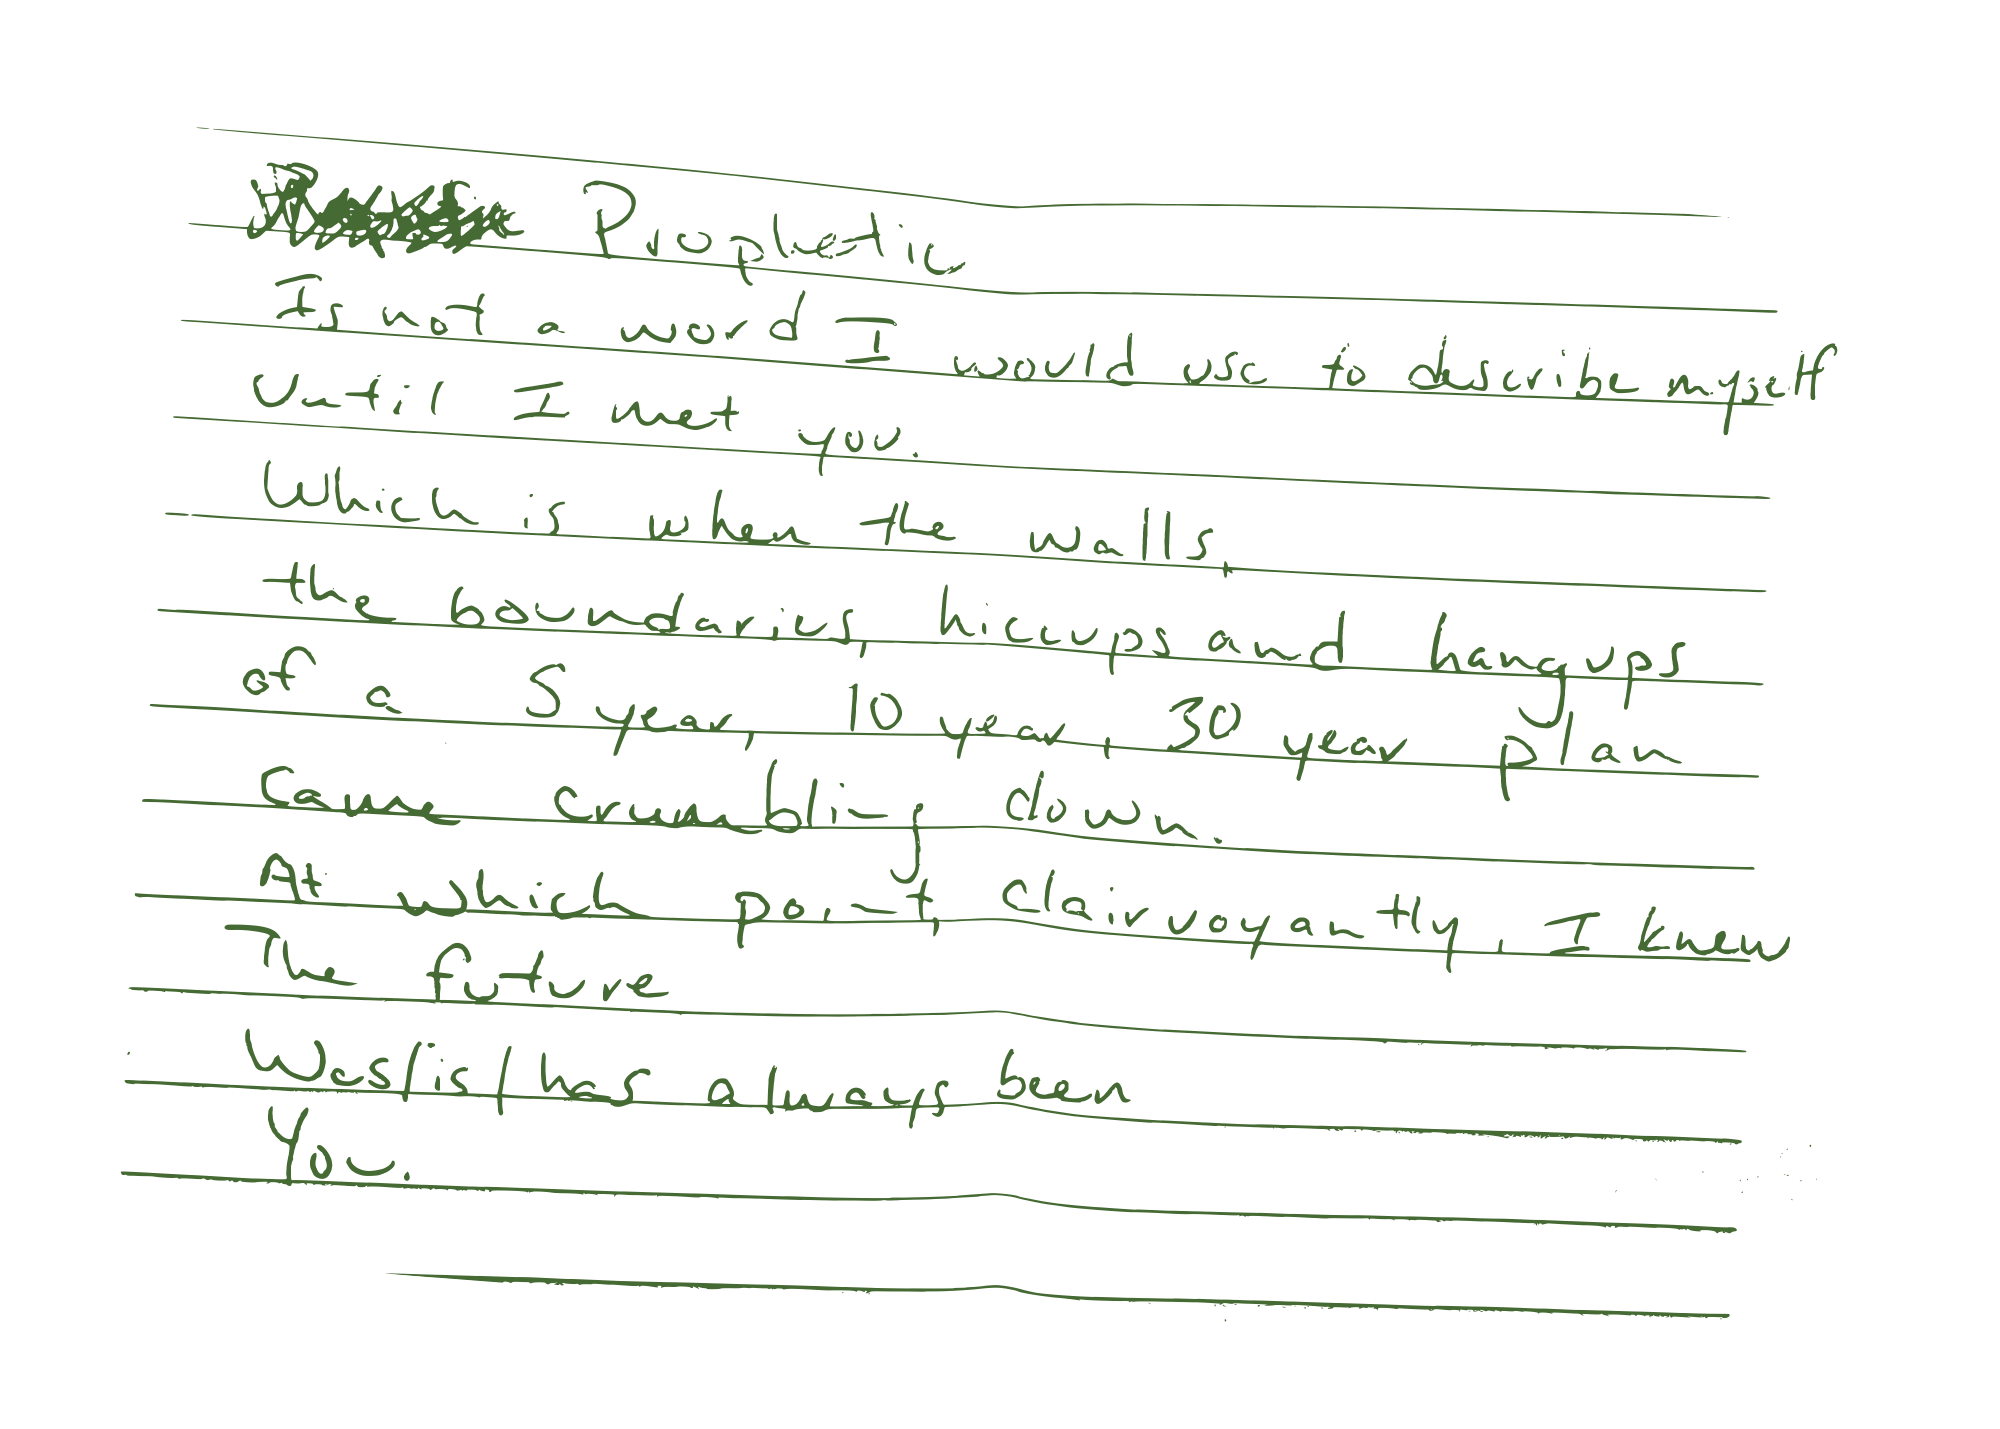 Prophetic
Is not a word I would use to describe myself
Until I met you.
Which is when the walls,
the boundaries, hiccups and hangups
of a 5 year, 10 year, 30 year plan
Came crumbling down.
At which point, clairvoyantly, I knew
The future
Was/is/has always been
You.